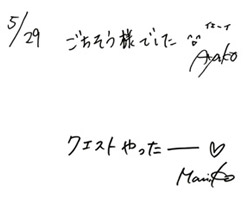 5/29 ごちそう様でした イェーイ Ayako
クエストやったー♡
Mariko